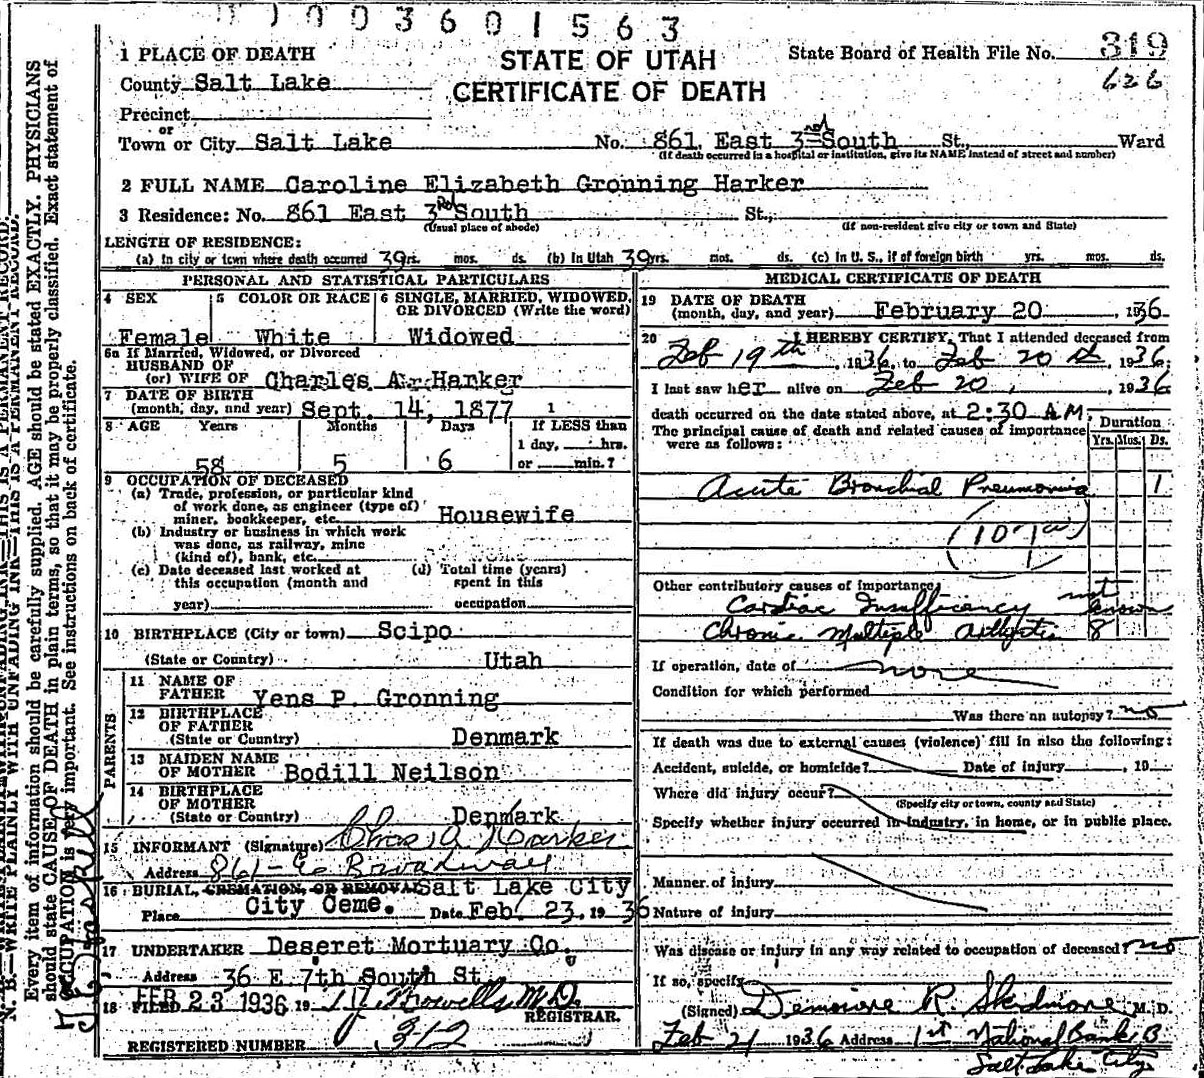 003601563
1 PLACE OF DEATH
STATE OF UTAH
CERTIFICATE OF DEATH
State Board of Health File No. 319
626
County Salt Lake
Precinct
or
Town or City Salt Lake No. 861 East 3rd South St., Ward
(If death occurred in a hospital or institution, give its NAME instead of street and number)
2 FULL NAME Caroline Elizabeth Gronning Harker
3 Residence: No. 861 East 3rd South St.,
(Usual place of abode) (If non-resident give city or town and State)
LENGTH OF RESIDENCE:
(a) In city or town where death occurred 39 yrs. mos. ds. (b) In Utah 39 yrs. mos. ds. (c) In U. S., if of foreign birth yrs. mos. ds.
PERSONAL AND STATISTICAL PARTICULARS
4 SEX 5 COLOR OR RACE 6 SINGLE, MARRIED, WIDOWED, OR DIVORCED (Write the word)
Female White Widowed
6a If Married, Widowed, or Divorced
HUSBAND OF
(or) WIFE OF Charles A. Harker
7 DATE OF BIRTH
(month, day, and year) Sept. 14, 1877 1
8 AGE Years Months Days If LESS than
1 day, hrs.
58 5 6 or min.?
9 OCCUPATION OF DECEASED
(a) Trade, profession, or particular kind
of work done, as engineer (type of)
miner, bookkeeper, etc. Housewife
(b) Industry or business in which work
was done, as railway, mine
(kind of), bank, etc.
(c) Date deceased last worked at (d) Total time (years)
this occupation (month and spent in this
year) occupation
10 BIRTHPLACE (City or town) Scipo
(State or Country) Utah
PARENTS
11 NAME OF
FATHER Yens P. Gronning
12 BIRTHPLACE
OF FATHER
(State or Country) Denmark
13 MAIDEN NAME
OF MOTHER Bodill Neilson
14 BIRTHPLACE
OF MOTHER
(State or Country) Denmark
15 INFORMANT (Signature) Chas. A. Harker
Address 861-Ea Broadway
16 BURIAL, CREMATION, OR REMOVAL Salt Lake City
Place City Ceme. Date Feb. 23, 1936
17 UNDERTAKER Deseret Mortuary Co.
Address 36 E 7th South St.
18 FILED FEB 23 1936 19 M.D.
REGISTRAR.
REGISTERED NUMBER 312
MEDICAL CERTIFICATE OF DEATH
19 DATE OF DEATH
(month, day, and year) February 20, 1936
20 I HEREBY CERTIFY, That I attended deceased from
Feb 19th, 1936, to Feb 20th, 1936
I last saw her alive on Feb 20, 1936
death occurred on the date stated above, at 2:30 A.M.
The principal cause of death and related causes of importance
were as follows:
Duration
Yrs. Mos. Ds.
Acute Bronchial Pneumonia 1
Other contributory causes of importance,
Cardiac Insufficiency not known
Chronic Multiple Arthritis 8
If operation, date of none
Condition for which performed
Was there an autopsy? no
If death was due to external causes (violence) fill in also the following:
Accident, suicide, or homicide? Date of injury , 19
Where did injury occur?
(Specify city or town, county and State)
Specify whether injury occurred in industry, in home, or in public place.
Manner of injury
Nature of injury
Was disease or injury in any way related to occupation of deceased? no
If so, specify
(Signed) R. Skidmore M. D.
Feb 21 1936 Address 1st National Bank B
Salt Lake City
N. B.—WRITE PLAINLY WITH UNFADING INK—THIS IS A PERMANENT RECORD.
Every item of information should be carefully supplied. AGE should be stated EXACTLY. PHYSICIANS
should state CAUSE OF DEATH in plain terms, so that it may be properly classified. Exact statement of
OCCUPATION is very important. See instructions on back of certificate.